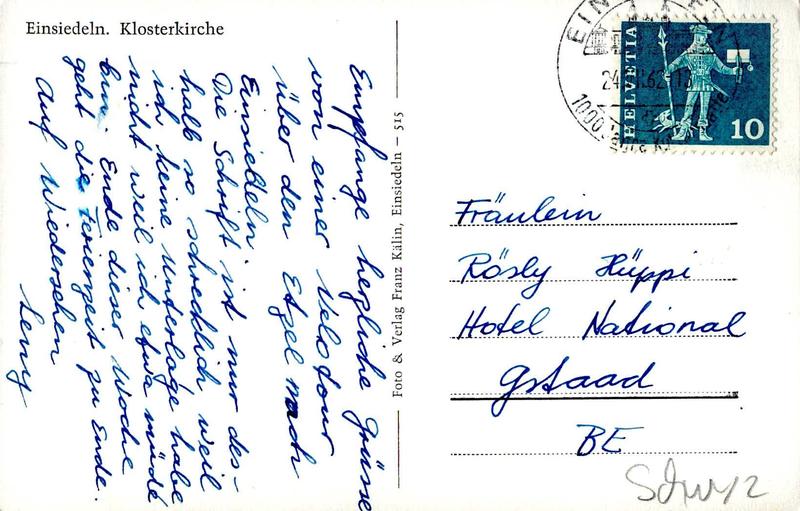 Einsiedeln. Klosterkirche
Empfange herzliche Grüsse
von einer Velotour
über den Etzel nach
Einsiedeln.
Die Schrift ist nur des-
halb so schrecklich weil
ich keine Unterlage habe
nicht weil ich etwa müde
bin. Ende dieser Woche
geht die Ferienzeit zu Ende.
Auf Wiedersehen
Leny
Foto & Verlag Franz Kälin, Einsiedeln – 515
HELVETIA
10
Fräulein
Rösly Hüppi
Hotel National
Gstaad
BE
Schwyz